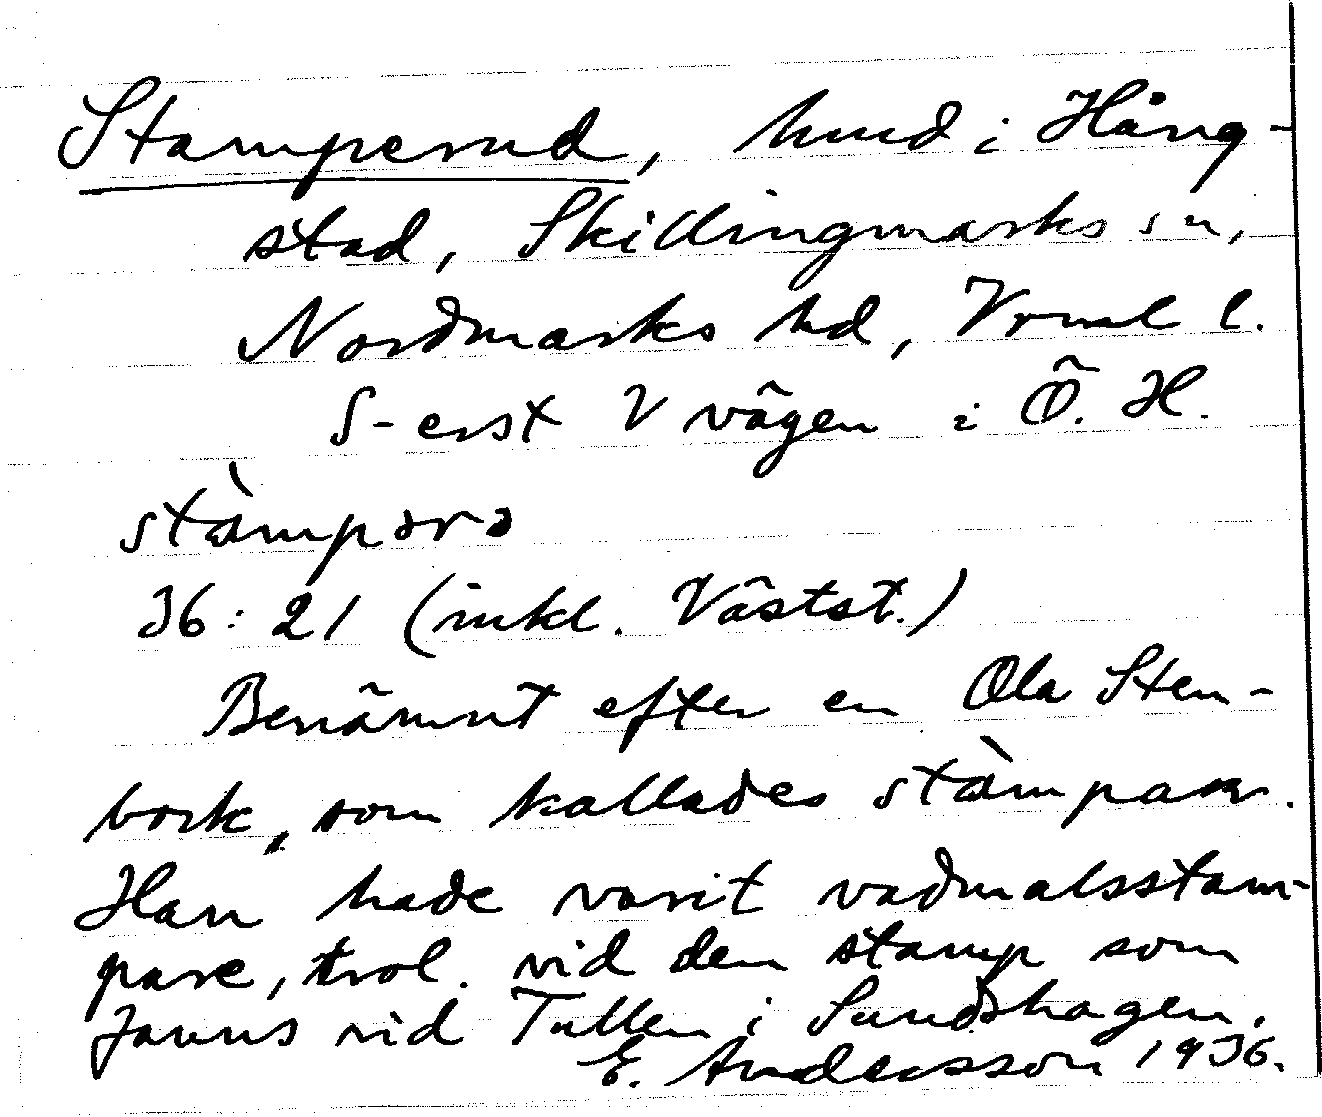 Stamperud, hmd i Häng-
stad, Skillingmarks sn,
Nordmarks hd, Vrml l.
S-erst V vägen i Ö. H.
stàmpərə
36: 21 (inkl. Västst.)
Benämnt efter en Ola Sten-
bock, som kallades stàmparn.
Han hade varit vadmalsstam-
pare, trol. vid den stamp som
fanns vid Tullen i Sundshagen.
E. Andersson 1936.